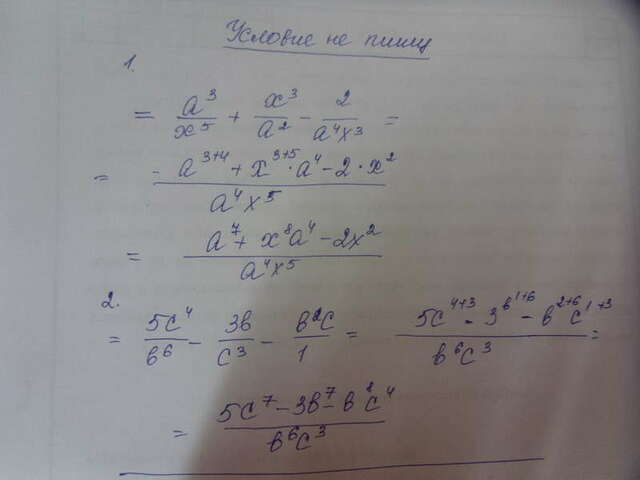 Условие не пишу
1.
= a³/x⁵ + x³/a² - 2/a⁴x³ =
= - a³⁺⁴ + x³⁺⁵ · a⁴ - 2 · x² / a⁴x⁵
= a⁷ + x⁸a⁴ - 2x² / a⁴x⁵
2.
= 5c⁴/в⁶ - 3в/c³ - в²c/1 = 5c⁴⁺³ - 3в¹⁺⁶ - в²⁺⁶c¹⁺³ / в⁶c³ =
= 5c⁷ - 3в⁷ - в⁸c⁴ / в⁶c³